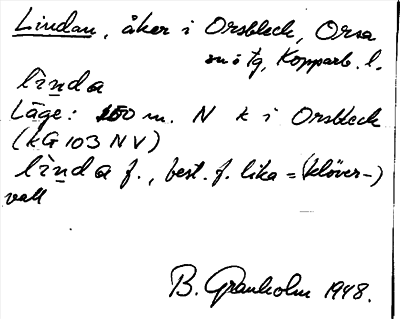 Lindan, åker i Orsbleck, Orsa
sn i fg, Kopparb. l.
lìnda
Läge: 150 m. N k i Orsbleck
(kG 103 NV)
lìnda f., best. f. lika = (klöver-)
vall
B. Granholm 1948.